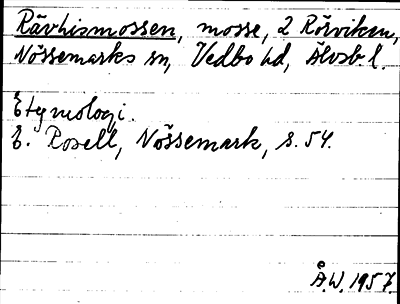 Rävhismossen, mosse, 2 Rörviken,
Nössemarks sn, Vedbo hd, Älvsb. l.
Etymologi.
E. Rosell, Nössemark, s. 54.
Å.W. 1957.